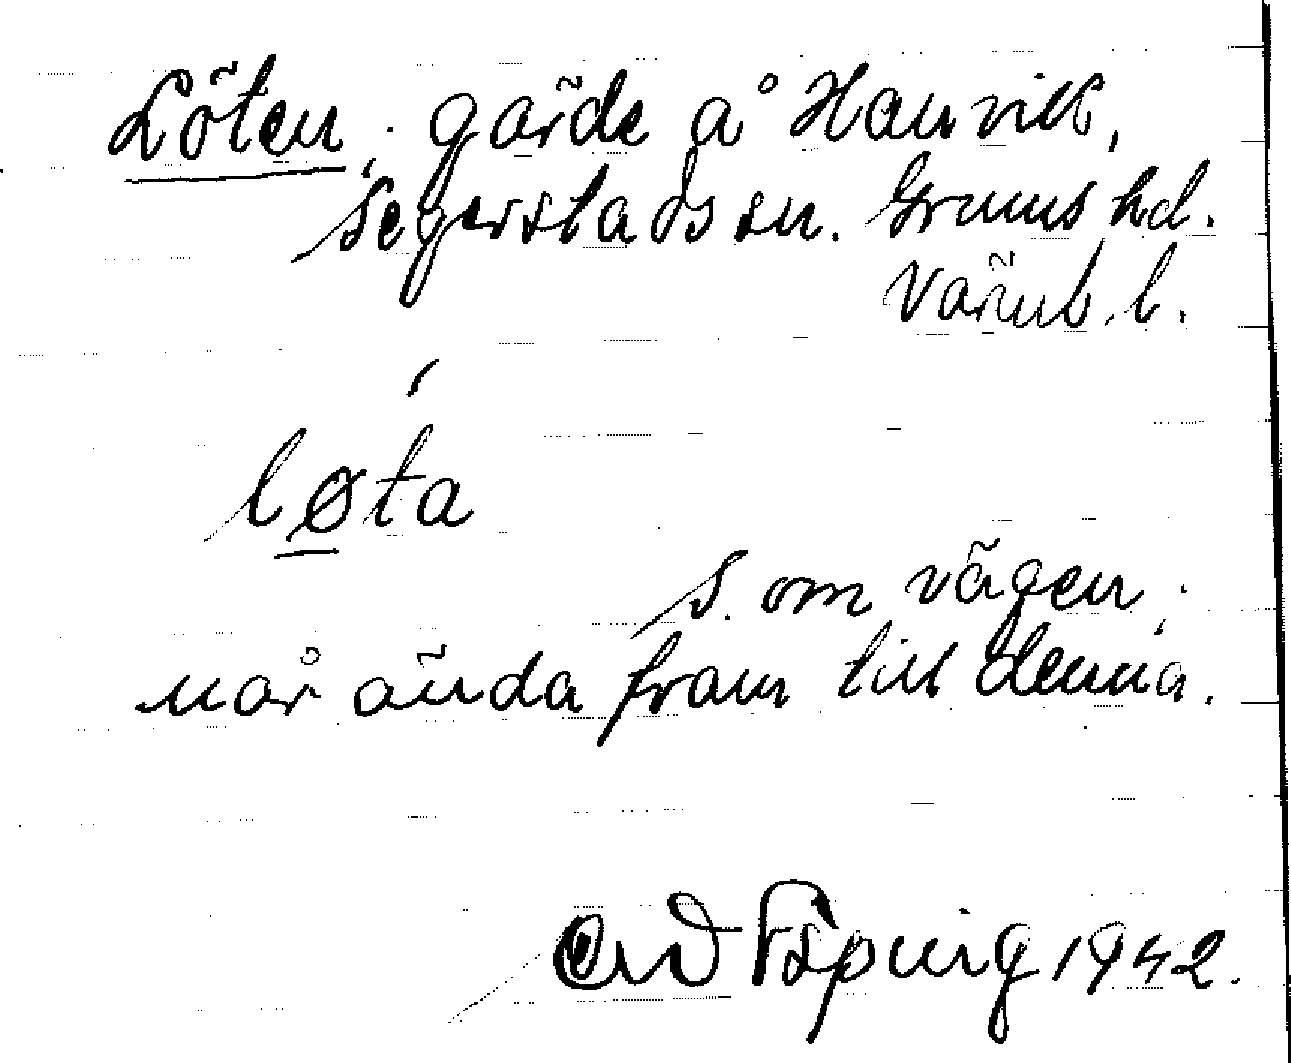 Löten, gärde å Hanvik,
Segerstads sn. Grums hd.
Värml. l.
løta
S. om vägen,
når ända fram till denna.
1942.